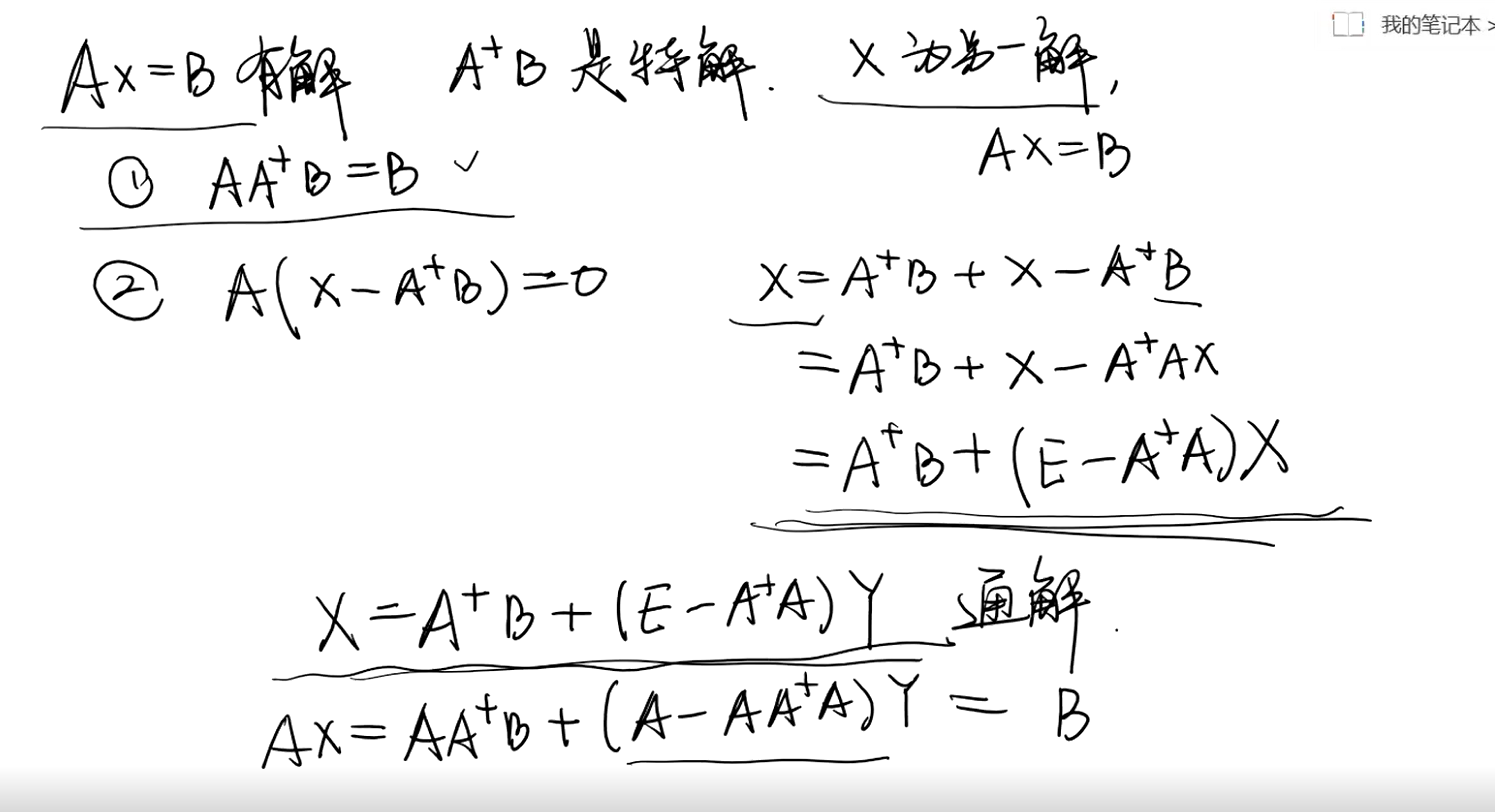 我的笔记本 >
AX=B 有解 A⁺B 是特解. X 为另一解,
AX=B
① AA⁺B=B ✓
② A(X-A⁺B)=0
X=A⁺B+X-A⁺B
=A⁺B+X-A⁺AX
=A⁺B+(E-A⁺A)X
X=A⁺B+(E-A⁺A)Y 通解.
AX=AA⁺B+(A-AA⁺A)Y=B